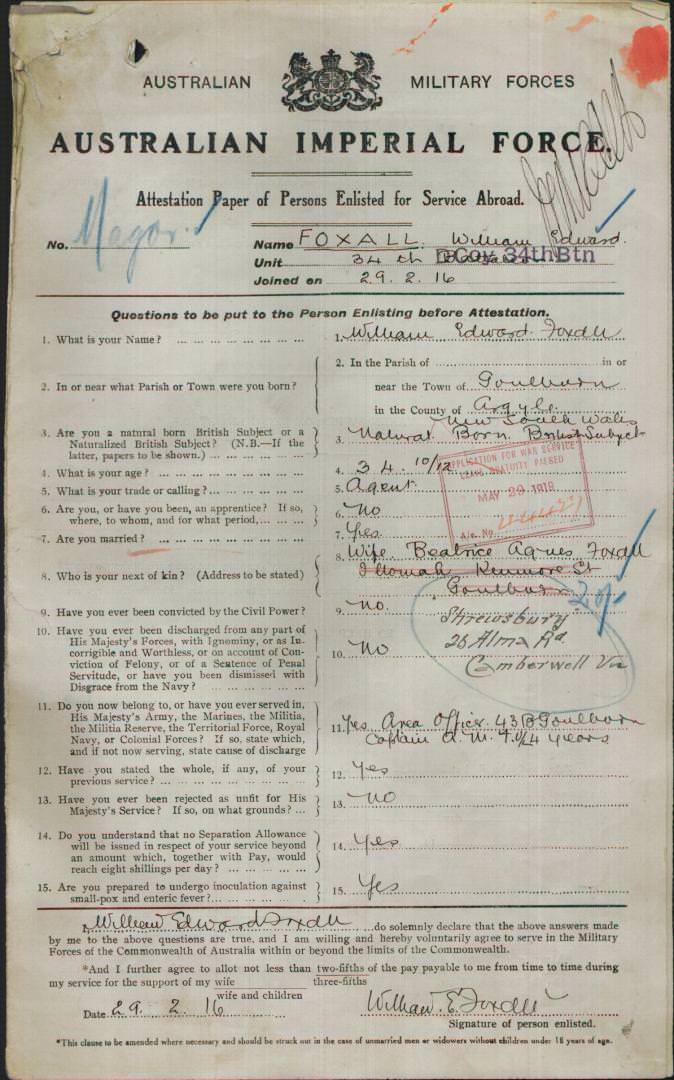 AUSTRALIAN MILITARY FORCES
AUSTRALIAN IMPERIAL FORCE.
Attestation Paper of Persons Enlisted for Service Abroad.
No. Major. Name FOXALL. William Edward.
Unit 34th D Coy. 34th Btn
Joined on 29. 2. 16
Questions to be put to the Person Enlisting before Attestation.
1. What is your Name? 1. William Edward Foxall
2. In or near what Parish or Town were you born? 2. In the Parish of in or
near the Town of Goulburn
in the County of Argyle
New South Wales
3. Are you a natural born British Subject or a 3. Natural Born British Subject
Naturalized British Subject? (N.B.—If the
latter, papers to be shown.)
4. What is your age? 4. 34. 10/12
5. What is your trade or calling? 5. Agent
APPLICATION FOR WAR SERVICE
LEAVE GRATUITY PASSED
MAY 29 1918
A/c. No.
6. Are you, or have you been, an apprentice? If so, 6. No
where, to whom, and for what period,
7. Are you married? 7. Yes.
8. Who is your next of kin? (Address to be stated) 8. Wife Beatrice Agnes Foxall
Kenmore St
Goulburn
Shrewsbury
26 Alma Rd
Camberwell Vic
9. Have you ever been convicted by the Civil Power? 9. No.
10. Have you ever been discharged from any part of 10. No
His Majesty's Forces, with Ignominy, or as In-
corrigible and Worthless, or on account of Con-
viction of Felony, or of a Sentence of Penal
Servitude, or have you been dismissed with
Disgrace from the Navy?
11. Do you now belong to, or have you ever served in, 11. Yes Area Officer. 43B Goulburn
His Majesty's Army, the Marines, the Militia, Captain A. M. F. 4 years
the Militia Reserve, the Territorial Force, Royal
Navy, or Colonial Forces? If so, state which,
and if not now serving, state cause of discharge
12. Have you stated the whole, if any, of your 12. Yes
previous service?
13. Have you ever been rejected as unfit for His 13. No
Majesty's Service? If so, on what grounds?
14. Do you understand that no Separation Allowance 14. Yes
will be issued in respect of your service beyond
an amount which, together with Pay, would
reach eight shillings per day?
15. Are you prepared to undergo inoculation against 15. Yes
small-pox and enteric fever?
I, William Edward Foxall do solemnly declare that the above answers made
by me to the above questions are true, and I am willing and hereby voluntarily agree to serve in the Military
Forces of the Commonwealth of Australia within or beyond the limits of the Commonwealth.
*And I further agree to allot not less than two-fifths of the pay payable to me from time to time during
my service for the support of my wife three-fifths
wife and children
Date 29. 2. 16 William. E. Foxall
Signature of person enlisted.
*This clause to be amended where necessary and should be struck out in the case of unmarried men or widowers without children under 18 years of age.